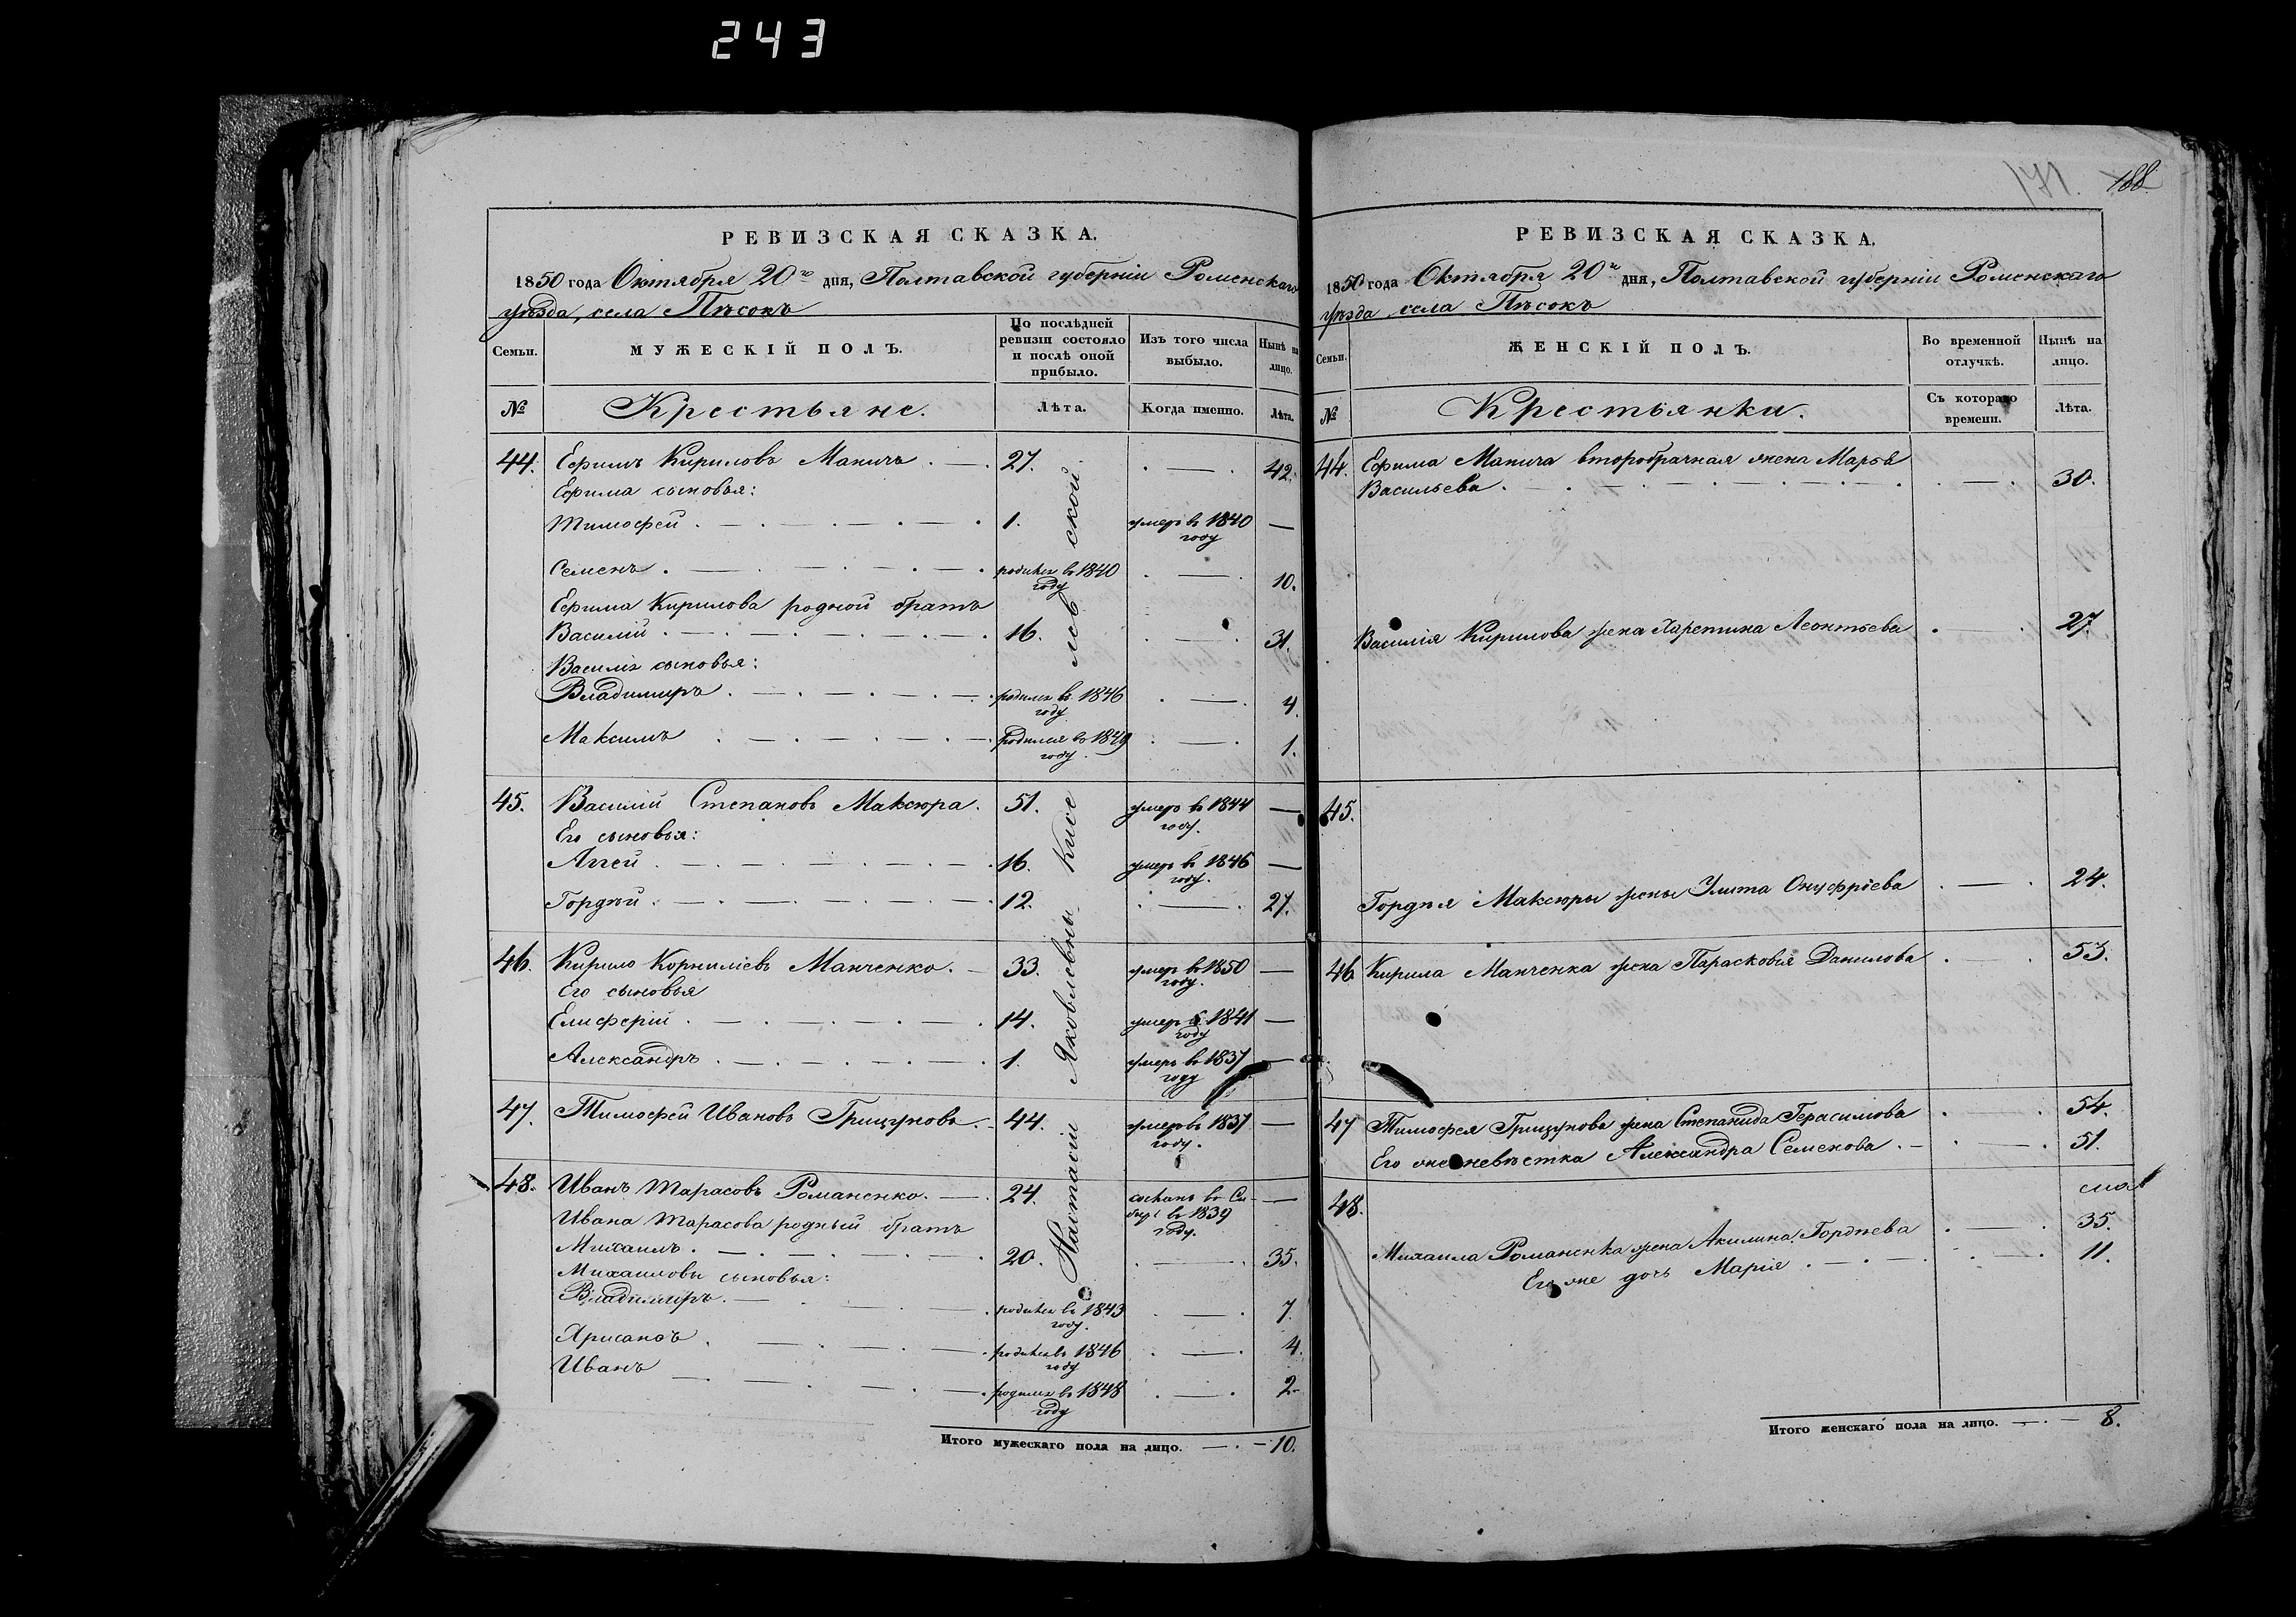 243
171. 188
РЕВИЗСКАЯ СКАЗКА.
1850 года Октября 20го дня, Полтавской губерніи Роменскаго
уѣзда, села Пѣсокъ
Семьи.
МУЖЕСКІЙ ПОЛЪ.
По послѣдней
ревизіи состояло
и послѣ оной
прибыло.
Изъ того числа
выбыло.
Нынѣ на
лицо.
№
Крестьяне.
Лѣта.
Когда именно.
Лѣта.
44. Ефимъ Кириловъ Маничъ 27. 42.
Ефима сыновья:
Тимофей 1. умеръ въ 1840 году
Семенъ родился въ 1840 году 10.
Ефима Кирилова родной братъ
Василій 16. 31.
Василія сыновья:
Владимиръ родился въ 1846 году 4.
Максимъ родился въ 1849 году 1.
45. Василій Степановъ Максюра. 51. умеръ въ 1844 году.
Его сыновья:
Аггей 16. умеръ въ 1846 году.
Гордѣй 12. 27.
46. Кирило Корниліевъ Манченко. 33. умеръ въ 1850 году.
Его сыновья
Елиферій 14. умеръ въ 1841 году
Александръ 1. умеръ въ 1837 году
47. Тимофей Ивановъ Грицуновъ 44. умеръ въ 1837 году.
48. Иванъ Тарасовъ Романенко. 24. сосланъ въ Сибирь въ 1839 году.
Ивана Тарасова родный братъ
Михаилъ 20. 35.
Михаиловы сыновья:
Владимиръ родился въ 1843 году. 7.
Хрисанъ родился въ 1846 году 4.
Иванъ родился въ 1848 году 2.
Настасіи Яковлевны Киселевской
Итого мужескаго пола на лицо. 10.
РЕВИЗСКАЯ СКАЗКА.
1850 года Октября 20го дня, Полтавской губерніи Роменскаго
уѣзда села Пѣсокъ
Семьи.
ЖЕНСКІЙ ПОЛЪ.
Во временной
отлучкѣ.
Нынѣ на
лицо.
№
Крестьянки.
Съ котораго
времени.
Лѣта.
44. Ефима Манича второбрачная жена Марья
Васильева 30.
Василія Кирилова жена Харитина Леонтьева 27.
45.
Гордѣя Максюры жены Улита Онуфріева 24.
46. Кирила Манченка жена Парасковія Данилова 53.
47 Тимофея Грицунова жена Степанида Герасимова 54.
Его же невѣстка Александра Семенова 51.
48.
Михаила Романенка жена Акилина Гордѣева 35.
Его же дочь Марія 11.
Итого женскаго пола на лицо. 8.